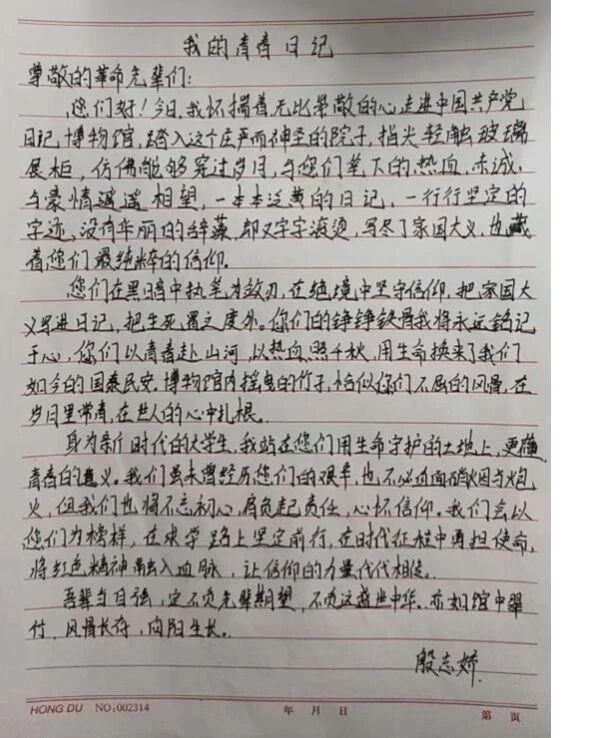 我的青春日记
尊敬的革命先辈们:
您们好!今日,我怀揣着无比崇敬的心走进中国共产党
日记博物馆,踏入这个庄严而神圣的院子,指尖轻触玻璃
展柜,仿佛能够穿过岁月,与您们笔下的热血、赤诚、
与豪情遥遥相望,一本本泛黄的日记,一行行坚定的
字迹,没有华丽的辞藻,却又字字滚烫,写尽了家国大义,也藏
着您们最纯粹的信仰。
您们在黑暗中执笔为放刃,在绝境中坚守信仰,把家国大
义写进日记,把生死置之度外。你们的铮铮铁骨我将永远铭记
于心,您们以青春赴山河,以热血照千秋,用生命换来了我们
如今的国泰民安,博物馆内摇曳的竹子,恰似你们不屈的风骨,在
岁月里常青,在世人的心中扎根。
身为新时代的大学生,我站在您们用生命守护的土地上,更懂
青春的意义。我们虽未曾经历您们的艰辛,也不必直面硝烟与炮
火,但我们也将不忘初心,肩负起责任,心怀信仰。我们会以
您们为榜样,在求学路上坚定前行,在时代征程中勇担使命,
将红色精神融入血脉,让信仰的力量代代相传。
吾辈当自强,定不负先辈期望,不负这盛世中华。亦如馆中翠
竹,风骨长存,向阳生长。
殷志娇
HONG DU NO:002314 年 月 日 第 页